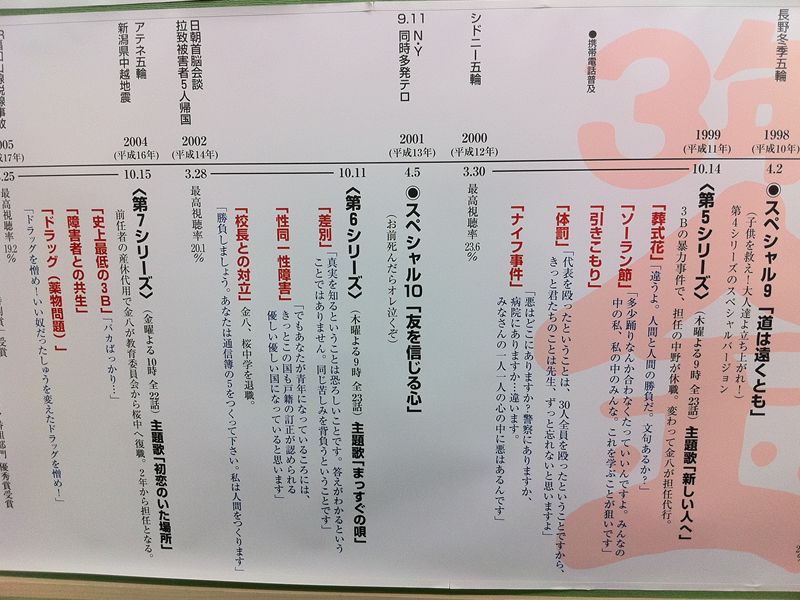 長野冬季五輪
1998
(平成10年)
4.2
●スペシャル9「道は遠くとも」
(子供を救え!大人達よ立ち上がれ!)
第4シリーズのスペシャルバージョン
●携帯電話普及
1999
(平成11年)
10.14
〈第5シリーズ〉(木曜よる9時 全23話) 主題歌「新しい人へ」
3Bの暴力事件で、担任の中野が休職。変わって金八が担任代行。
「葬式花」「違うよ。人間と人間の勝負だ。文句あるか?」
「ソーラン節」「多少踊りなんか合わなくたっていいんですよ。みんなの
中の私、私の中のみんな。これを学ぶことが狙いです」
「引きこもり」
「体罰」「代表を殴ったということは、30人全員を殴ったということですから、
きっと君たちのことは先生、ずっと忘れないと思いますよ」
「ナイフ事件」「悪はどこにありますか?警察にありますか、
病院にありますか…違います。
みなさんの一人一人の心の中に悪はあるんです」
シドニー五輪
2000
(平成12年)
3.30
最高視聴率
23.6%
9.11 N・Y
同時多発テロ
2001
(平成13年)
4.5
●スペシャル10「友を信じる心」
(お前死んだらオレ泣くぞ)
10.11
〈第6シリーズ〉(木曜よる9時 全23話) 主題歌「まっすぐの唄」
「差別」「真実を知るということは恐ろしいことです。答えがわかるという
ことではありません。同じ苦しみを背負うということです」
「性同一性障害」「でもあなたが青年になっているころには、
きっとこの国も戸籍の訂正が認められる
優しい優しい国になっていると思います」
「校長との対立」金八、桜中学を退職。
「勝負しましょう。あなたは通信簿の5をつくって下さい。私は人間をつくります」
日朝首脳会談
拉致被害者5人帰国
2002
(平成14年)
3.28
最高視聴率
20.1%
アテネ五輪
新潟県中越地震
2004
(平成16年)
10.15
〈第7シリーズ〉(金曜よる10時 全22話) 主題歌「初恋のいた場所」
前任者の産休代用で金八が教育委員会から桜中へ復職。2年から担任となる。
「史上最低の3B」「バカばっかり!…」
「障害者との共生」
「ドラッグ(薬物問題)」
「ドラッグを憎め!いい奴だったしゅうを変えたドラッグを憎め!」
山線脱線事故
005
17年)
.25
最高視聴率
19.2%
受賞
優秀賞受賞